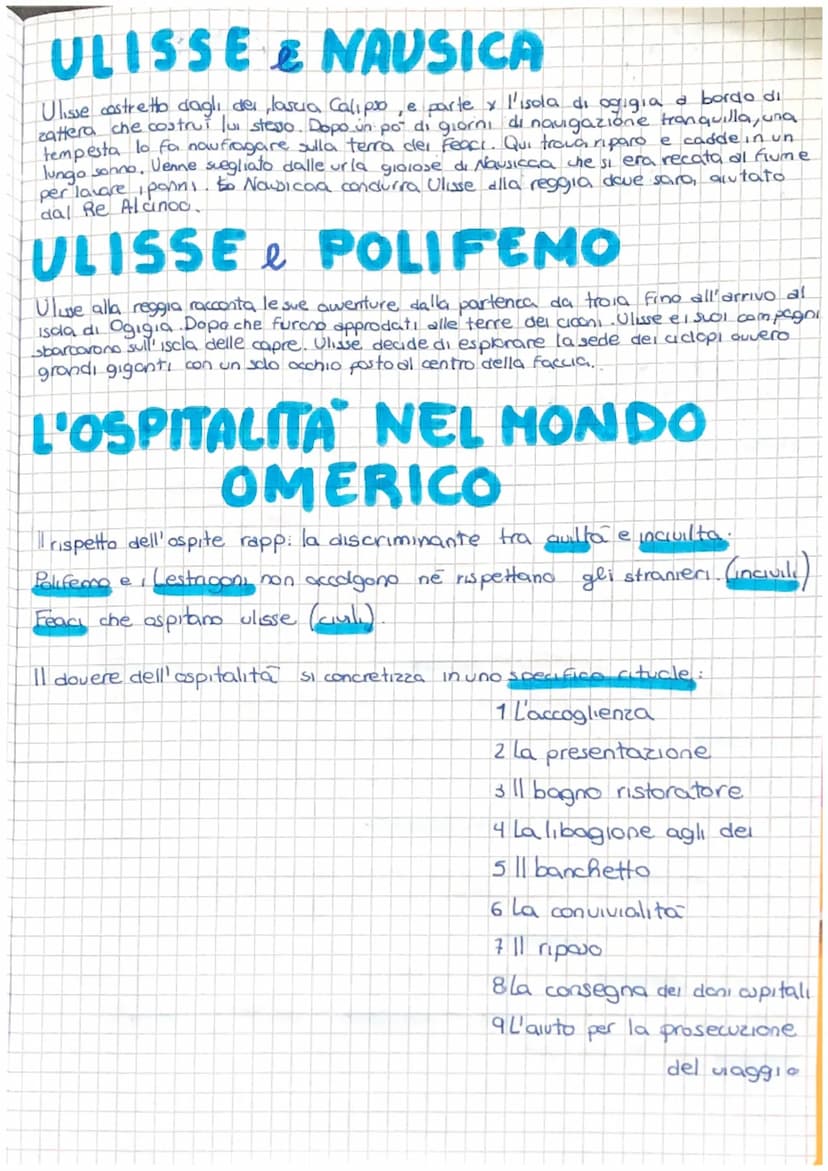 ULISSE e NAUSICA
Ulisse costretto dagli dei, lascia Calipso, e parte x l'isola di ogigia a bordo di
zattera che costruì lui stesso. Dopo un po' di giorni di navigazione tranquilla, una
tempesta lo fa naufragare sulla terra dei Feaci. Qui trova riparo e cadde in un
lungo sonno. Venne svegliato dalle urla gioiose di Nausicaa che si era recata al fiume
per lavare i panni. Nausicaa condurrà Ulisse alla reggia dove sarà, aiutato
dal Re Alcinoo.
ULISSE e POLIFEMO
Ulisse alla reggia racconta le sue avventure dalla partenza da troia fino all'arrivo al
isola di Ogigia. Dopo che furono approdati alle terre dei ciconi. Ulisse e i suoi compagni
sbarcarono sull'isola delle capre. Ulisse decide di esplorare la sede dei ciclopi ovvero
grandi giganti con un solo occhio posto al centro della faccia.
L'OSPITALITÀ NEL MONDO
OMERICO
Il rispetto dell'ospite rapp: la discriminante tra civiltà e inciviltà.
Polifemo e i Lestrigoni non accolgono né rispettano gli stranieri. (incivili)
Feaci che ospitano ulisse (civili).
Il dovere dell'ospitalità si concretizza in uno specifico rituale:
1 L'accoglienza
2 la presentazione
3 Il bagno ristoratore
4 La libagione agli dei
5 Il banchetto
6 La convivialità
7 Il riposo
8 la consegna dei doni ospitali
9 L'aiuto per la prosecuzione
del viaggio